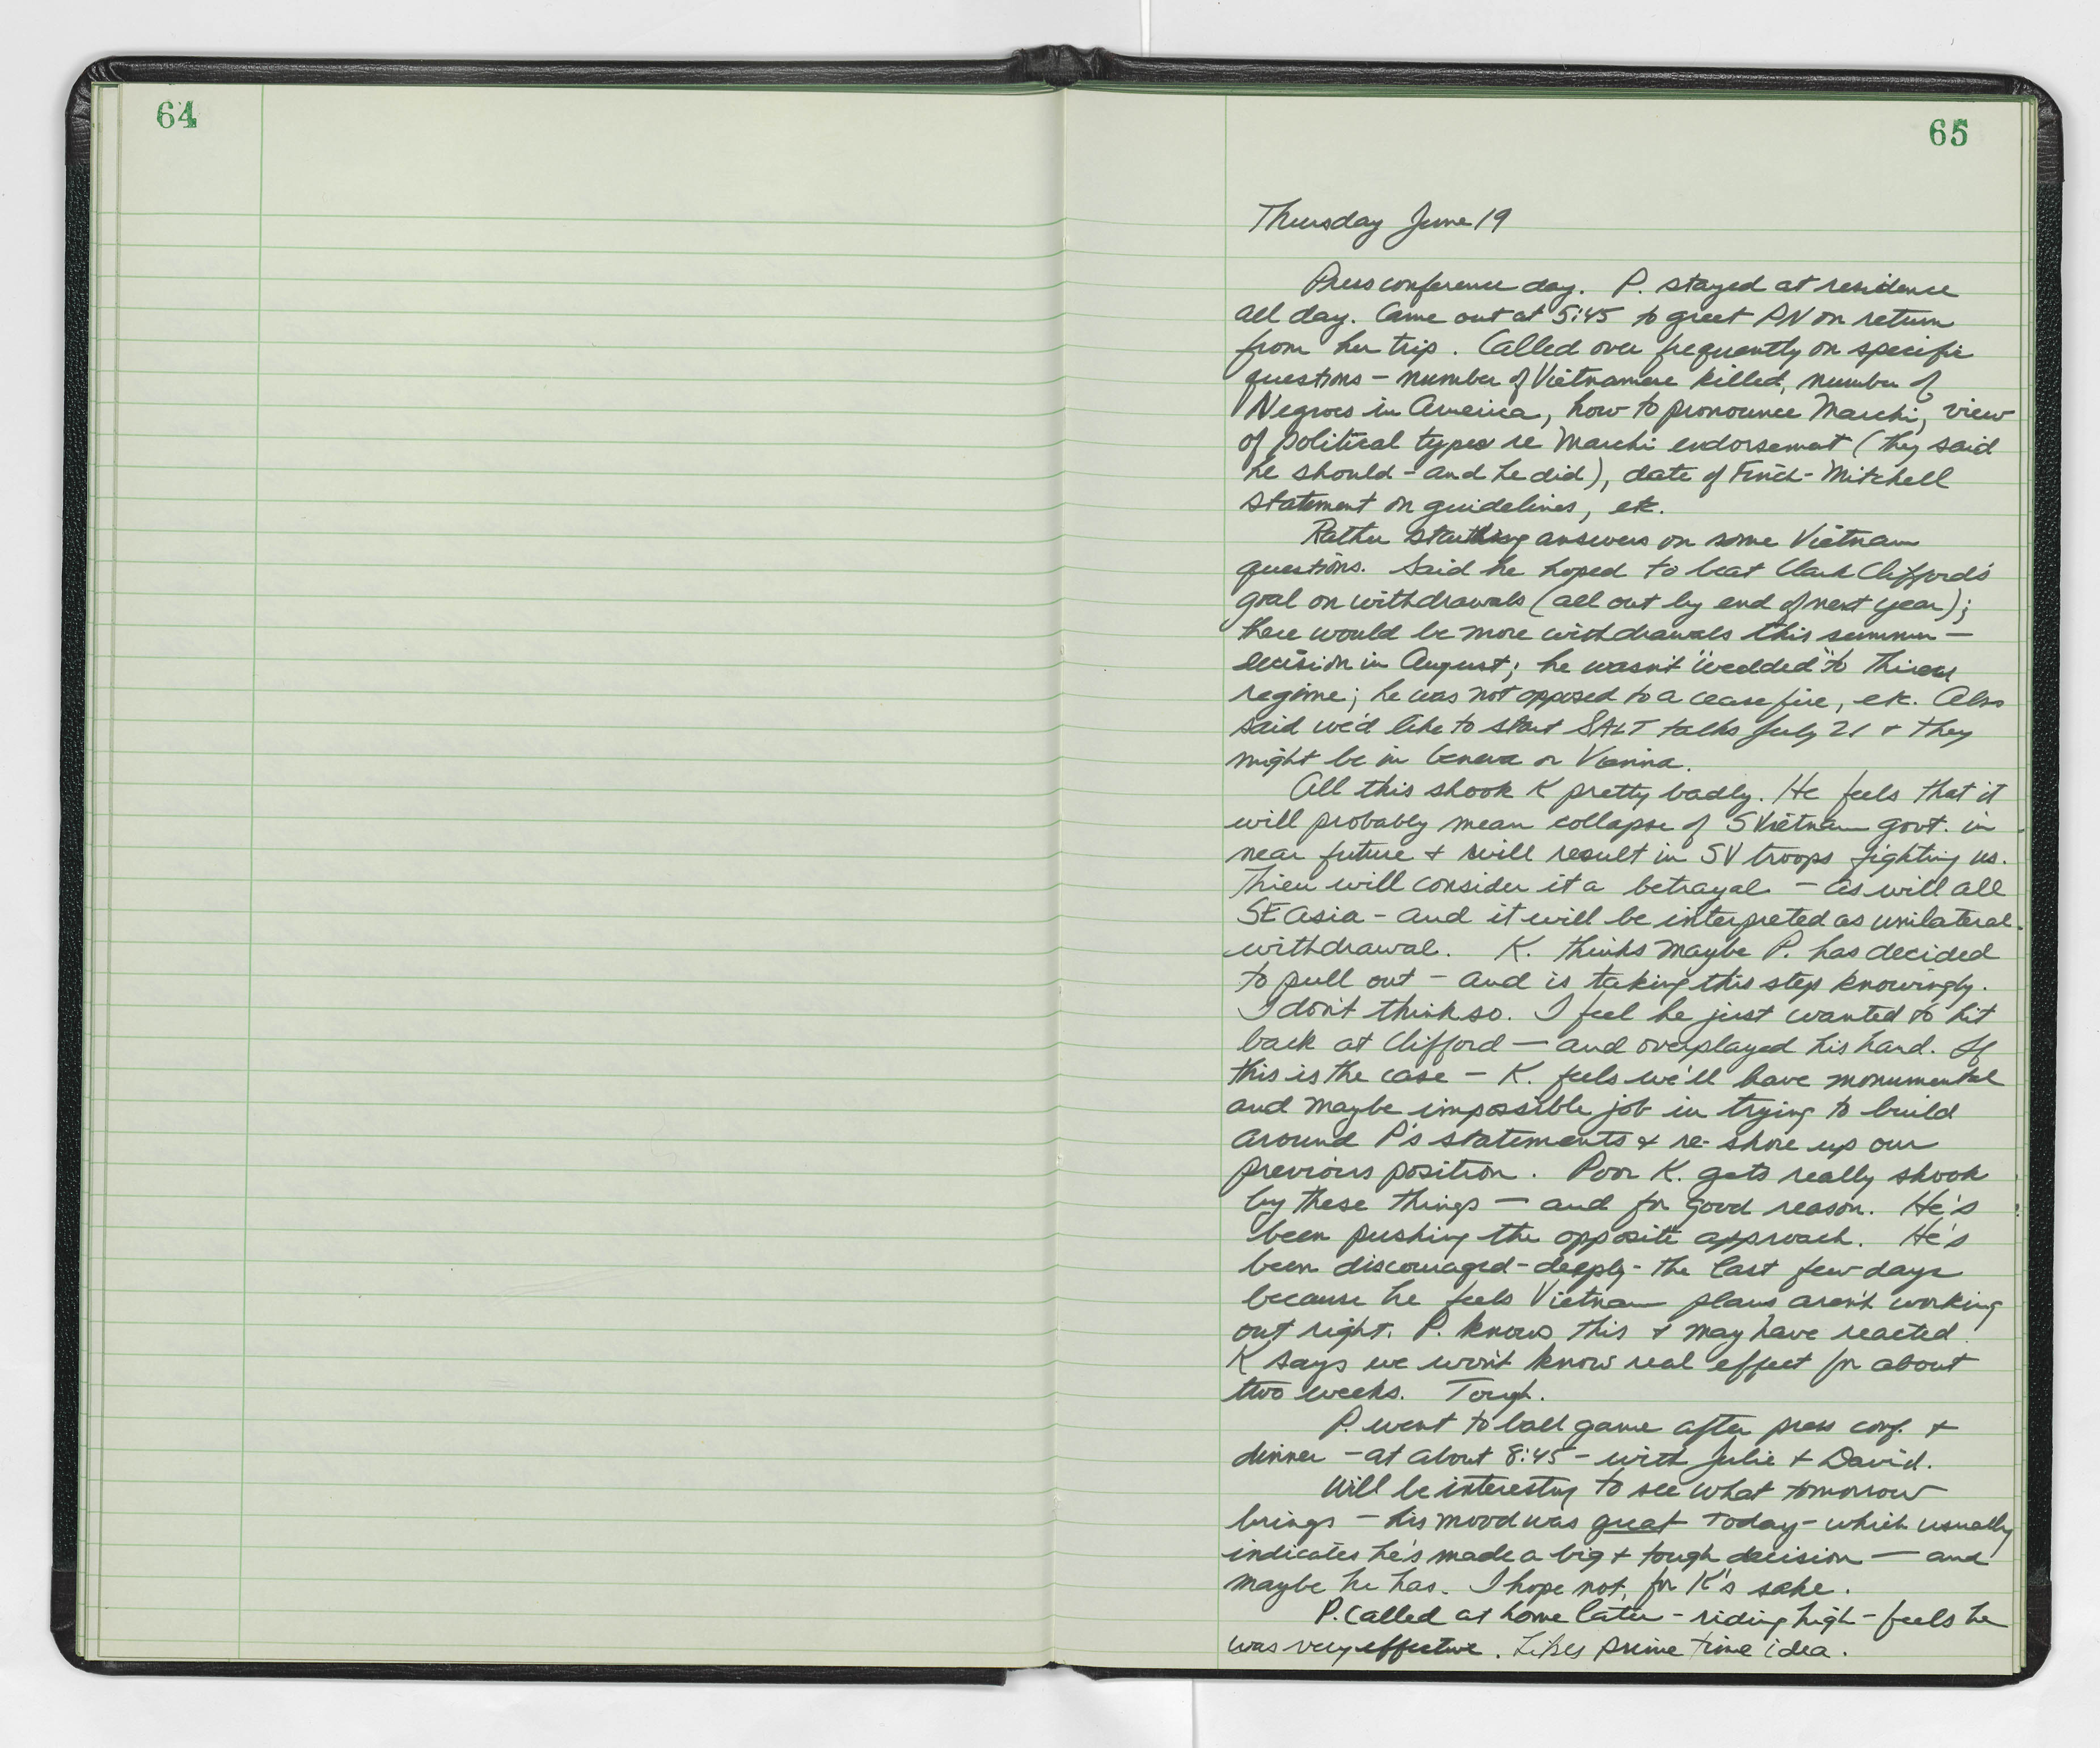 64
65
Thursday June 19
Press conference day. P. stayed at residence
all day. Came out at 5:45 to greet PN on return
from her trip. Called over frequently on specific
questions - number of Vietnamese killed, number of
Negroes in America, how to pronounce Marchi, view
of political types re Marchi endorsement (they said
he should - and he did), date of Finch-Mitchell
statement on guidelines, etc.
Rather startling answers on some Vietnam
questions. Said he hoped to beat Clark Clifford's
goal on withdrawals (all out by end of next year);
there would be more withdrawals this summer -
decision in August; he wasn't "wedded" to Thieu
regime; he was not opposed to a cease fire, etc. Also
said we'd like to start SALT talks July 21 + they
might be in Geneva or Vienna.
All this shook K pretty badly. He feels that it
will probably mean collapse of S Vietnam govt. in
near future + will result in SV troops fighting us.
Thieu will consider it a betrayal - as will all
SE Asia - and it will be interpreted as unilateral
withdrawal. K. thinks maybe P. has decided
to pull out - and is taking this step knowingly.
I don't think so. I feel he just wanted to hit
back at Clifford - and overplayed his hand. If
this is the case - K. feels we'll have monumental
and maybe impossible job in trying to build
around P's statements & re-shore up our
previous position. Poor K. gets really shook
by these things - and for good reason. He's
been pushing the opposite approach. He's
been discouraged - deeply - the last few days
because he feels Vietnam plans aren't working
out right. P. knows this + may have reacted.
K says we won't know real effect for about
two weeks. Tough.
P. went to ball game after press conf. +
dinner - at about 8:45 - with Julie + David.
Will be interesting to see what tomorrow
brings - his mood was great today - which usually
indicates he's made a big + tough decision - and
maybe he has. I hope not, for K's sake.
P. called at home later - riding high - feels he
was very effective. Likes prime time idea.